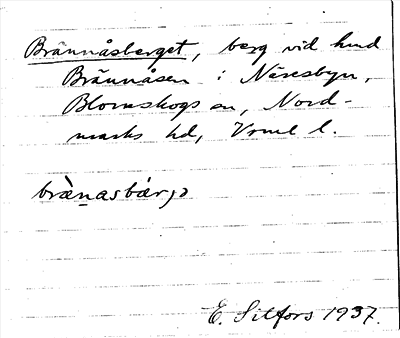 Brännåsberget, berg vid hmd
Brännåsen i Näresbyn,
Blomskogs sn, Nord-
marks hd, Vrml l.
bränasbärjə
E. Silfors 1937.